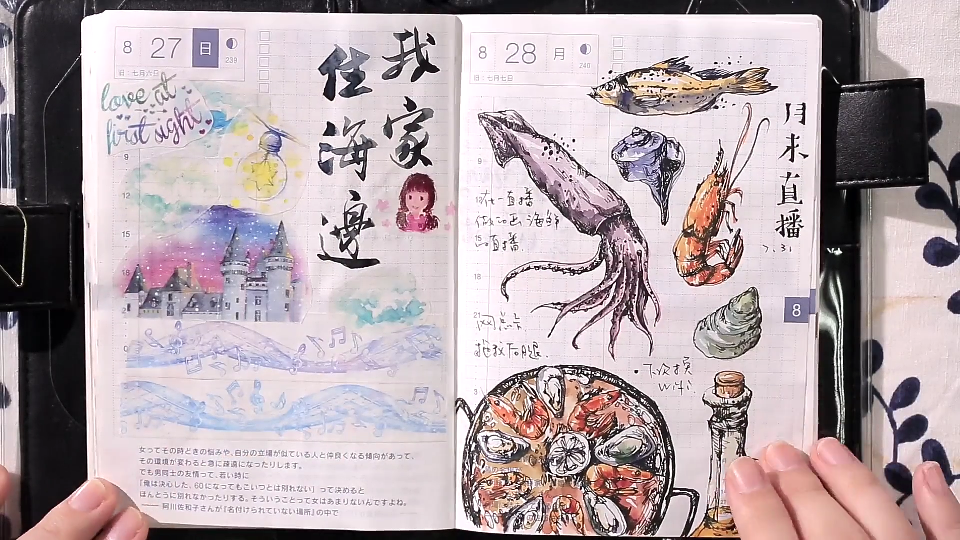 8 27 日
239
旧:七月六日
love at
first sight
我家
住海邊
9
12
15
18
女ってその時どきの悩みや、自分の立場が似ている人と仲良くなる傾向があって、
その環境が変わると急に疎遠になったりします。
でも男同士の友情って、若い時に
「俺は決心した、60になってもこいつとは別れない」って決めると
ほんとうに別れなかったりする。そういうことって女はあまりないんですよね。
――阿川佐和子さんが『名付けられていない場所』の中で
8 28 月
240
旧:七月七日
月末直播
7.31
9
一直播
做海鮮
直播.
15
18
21
8
•下次換
Wifi